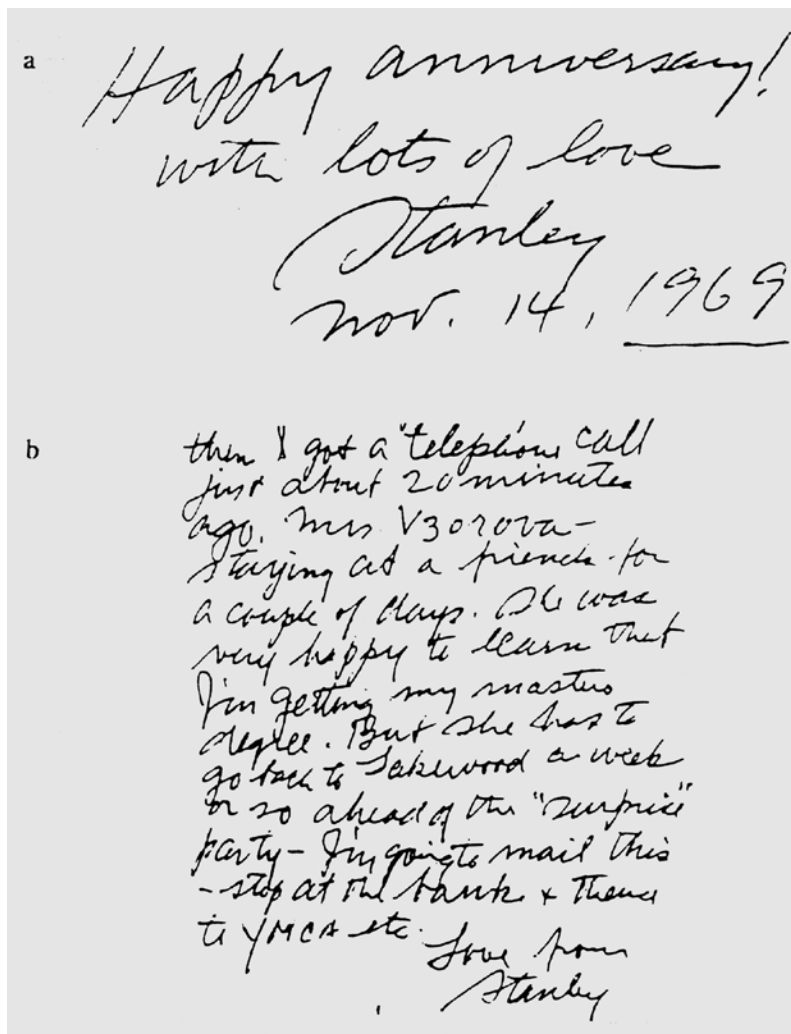 a
Happy anniversary!
with lots of love
Stanley
Nov. 14, 1969
b
then I got a telephone call
just about 20 minutes
ago. Mrs Vzorova -
staying at a friends for
a couple of days. She was
very happy to learn that
I'm getting my masters
degree. But she has to
go back to Lakewood a week
or so ahead of the "surprise"
party - I'm going to mail this
- stop at the bank + thence
to YMCA etc.
Love from
Stanley